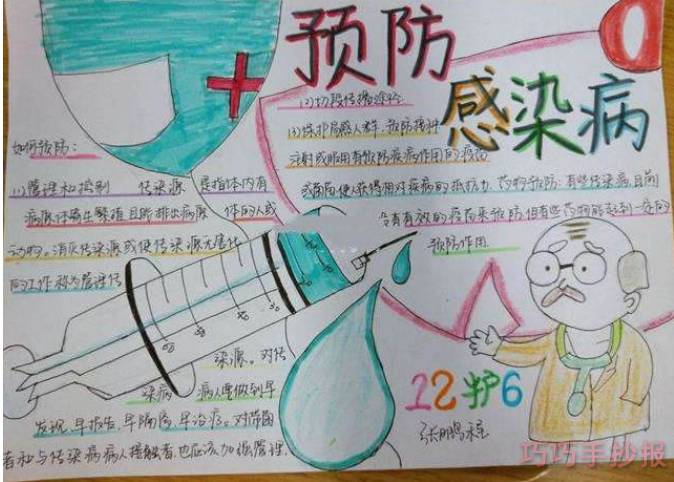 预防
感染病
如何预防:
(1)管理和控制 传染源 是指体内有
病原体寄生繁殖且能排出病原 体的人或
动物。消灭传染源或使传染源无害化
的工作称为管理传
染源。对传
染病 病人要做到早
发现,早报告,早隔离,早治疗。对带菌
者和与传染病病人接触者,也应该加强管理.
(2)切段传播途径:
(3)保护易感人群,预防接种
注射或服用有防疾病作用的疫苗
或菌苗使人获得相对疾病的抵抗力,药物预防:有些传染病,目前
没有有效的疫苗来预防,但有些药物能起到一定的
预防作用.
12护6
巧巧手抄报